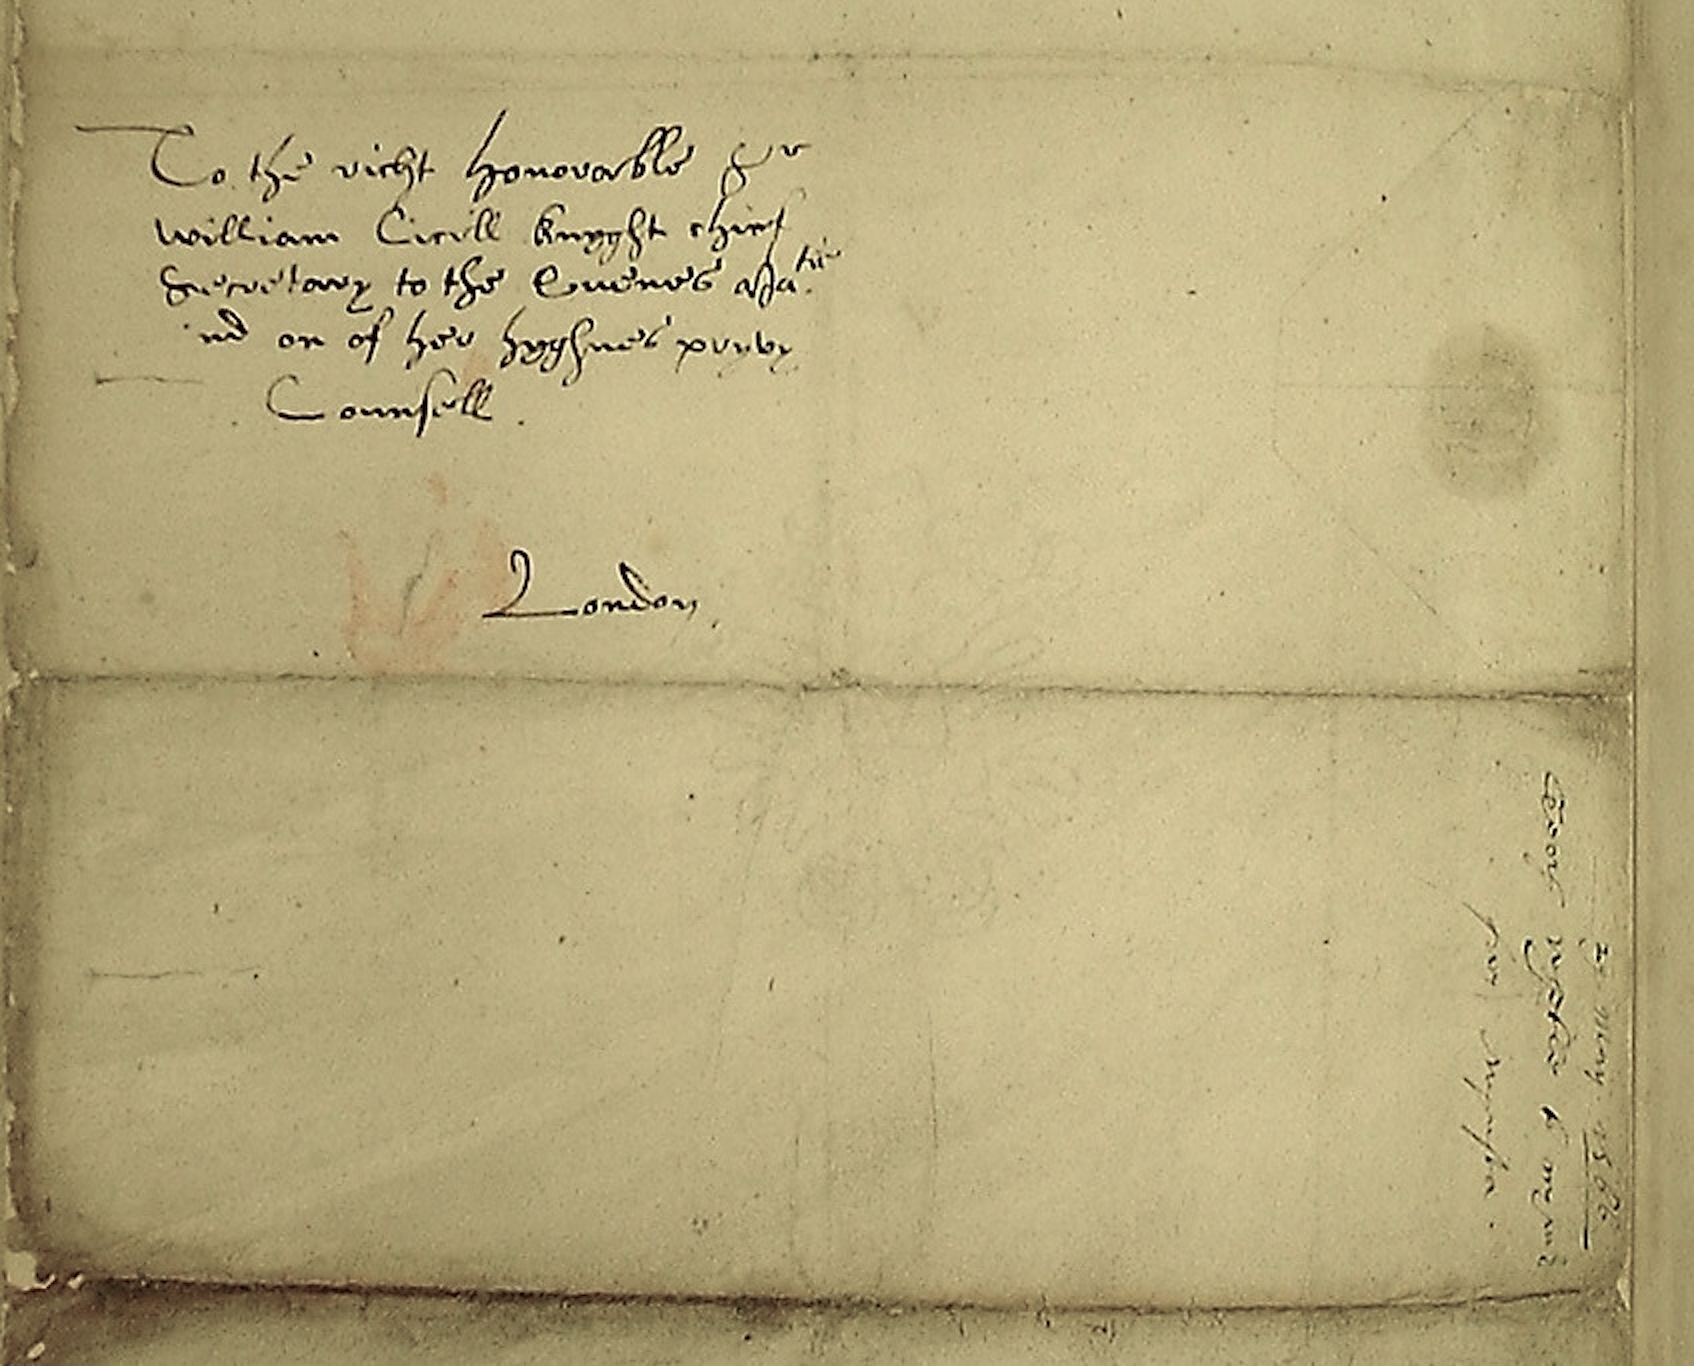 To the richt honorable Sr
William Cicill knyght chief
Secretary to the Quenes Matie
and on of her hyghnes pryvy
Counsell.
London.
25 May 1566
my
for